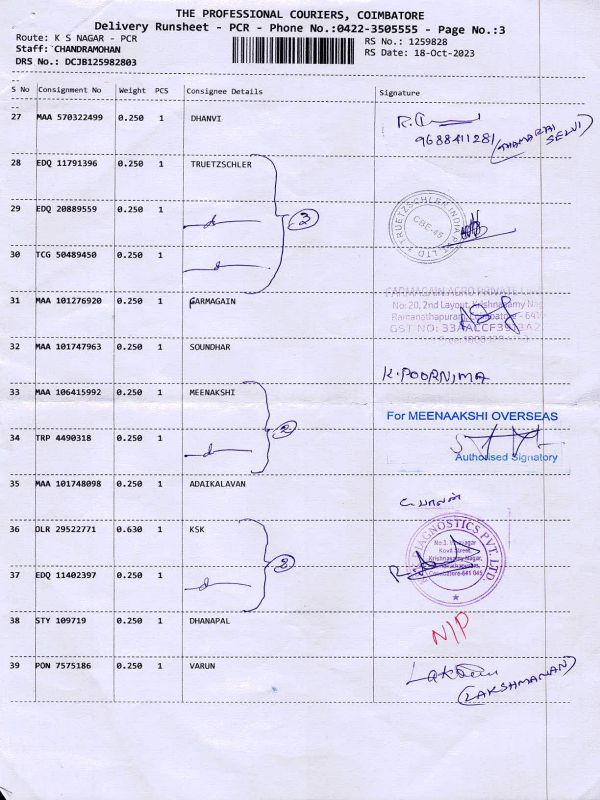 THE PROFESSIONAL COURIERS, COIMBATORE
Delivery Runsheet - PCR - Phone No.:0422-3505555 - Page No.:3
Route: K S NAGAR - PCR
RS No.: 1259828
Staff: CHANDRAMOHAN
RS Date: 18-Oct-2023
DRS No.: DCJB125982803
S No Consignment No Weight PCS Consignee Details Signature
27 MAA 570322499 0.250 1 DHANVI
9688411281
(THAMARAI SELVI)
28 EDQ 11791396 0.250 1 TRUETZSCHLER
3
29 EDQ 20889559 0.250 1
TRUETZSCHLER INDIA PVT LTD
CBE-45
30 TCG 50489450 0.250 1
31 MAA 101276920 0.250 1 GARMAGAIN
CARMAGAIN AGRO PRIVATE
No:20, 2nd Layout, Krishnasamy Nag
Ramanathapuram, Coimbatore - 641
32 MAA 101747963 0.250 1 SOUNDHAR
K.POORNIMA
33 MAA 106415992 0.250 1 MEENAKSHI
2
For MEENAAKSHI OVERSEAS
34 TRP 4490318 0.250 1
Authorised Signatory
35 MAA 101748098 0.250 1 ADAIKALAVAN
36 DLR 29522771 0.630 1 KSK
2
DIAGNOSTICS PVT. LTD
Krishnasamy Nagar,
Coimbatore-641 045
37 EDQ 11402397 0.250 1
38 STY 109719 0.250 1 DHANAPAL
N/P
39 PON 7575186 0.250 1 VARUN
(LAKSHMANAN)